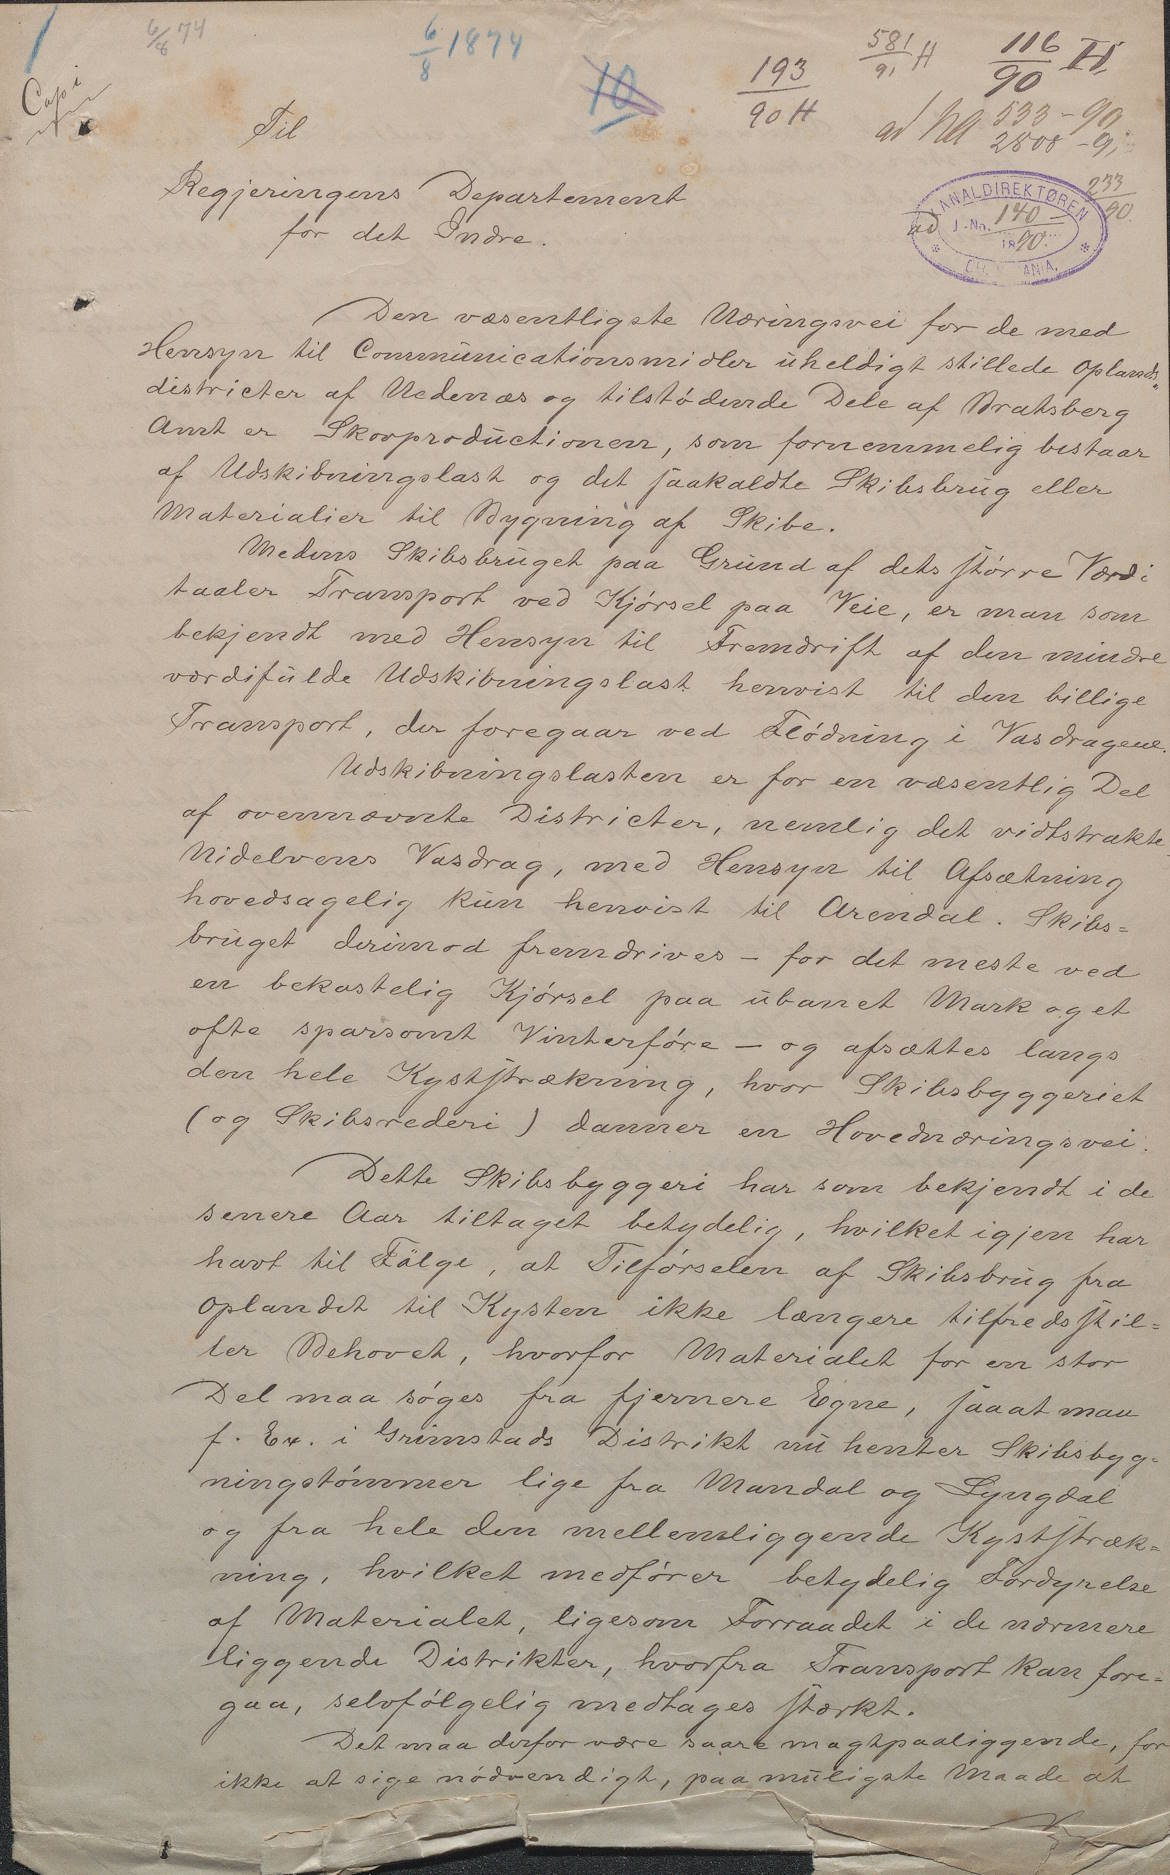 6/8 74
6/8 1874
10
193/90 H
581/91 H
116/90 H.
Copi
ad
533-90
2808-9
233/90.
KANALDIREKTØREN
ad J.-No. 140 -
1890.
ANIA.
Til
Regjeringens Departement
for det Indre.
Den væsentligste Næringsvei for de med
Hensyn til Communicationsmidler uheldigt stillede Oplands-
districter af Nedenæs og tilstödende Dele af Bratsberg
Amt er Skovproductionen, som fornemmelig bestaar
af Udskibningslast og det saakaldte Skibsbrug eller
Materialier til Bygning af Skibe.
Medens Skibsbruget paa Grund af dets större Værdi
taaler Transport ved Kjörsel paa Veie, er man som
bekjendt med Hensyn til Fremdrift af den mindre
værdifulde Udskibningslast henvist til den billige
Transport, der foregaar ved Flödning i Vasdragene.
Udskibningslasten er for en væsentlig Del
af ovennævnte Districter, nemlig det vidtstrakte
Nidelvens Vasdrag, med Hensyn til Afsætning
hovedsagelig kun henvist til Arendal. Skibs=
bruget derimod fremdrives - for det meste ved
en bekostelig Kjörsel paa ubanet Mark og et
ofte sparsomt Vinterföre - og afsættes langs
den hele Kyststrækning, hvor Skibsbyggeriet
(og Skibsrederi) danner en Hovednæringsvei.
Dette Skibsbyggeri har som bekjendt i de
senere Aar tiltaget betydelig, hvilket igjen har
havt til Fölge, at Tilförselen af Skibsbrug fra
Oplandet til Kysten ikke længere tilfredsstil=
ler Behovet, hvorfor Materialet for en stor
Del maa söges fra fjernere Egne, saaat man
f. Ex. i Grimstads Distrikt nu henter Skibsbyg=
ningstömmer lige fra Mandal og Lyngdal
og fra hele den mellemliggende Kyststræk=
ning, hvilket medförer betydelig Fordyrelse
af Materialet, ligesom Forraadet i de nærmere
liggende Distrikter, hvorfra Transport kan fore=
gaa, selvfölgelig medtages stærkt.
Det maa derfor være saare magtpaaliggende, for
ikke at sige nödvendigt, paa muligste Maade at